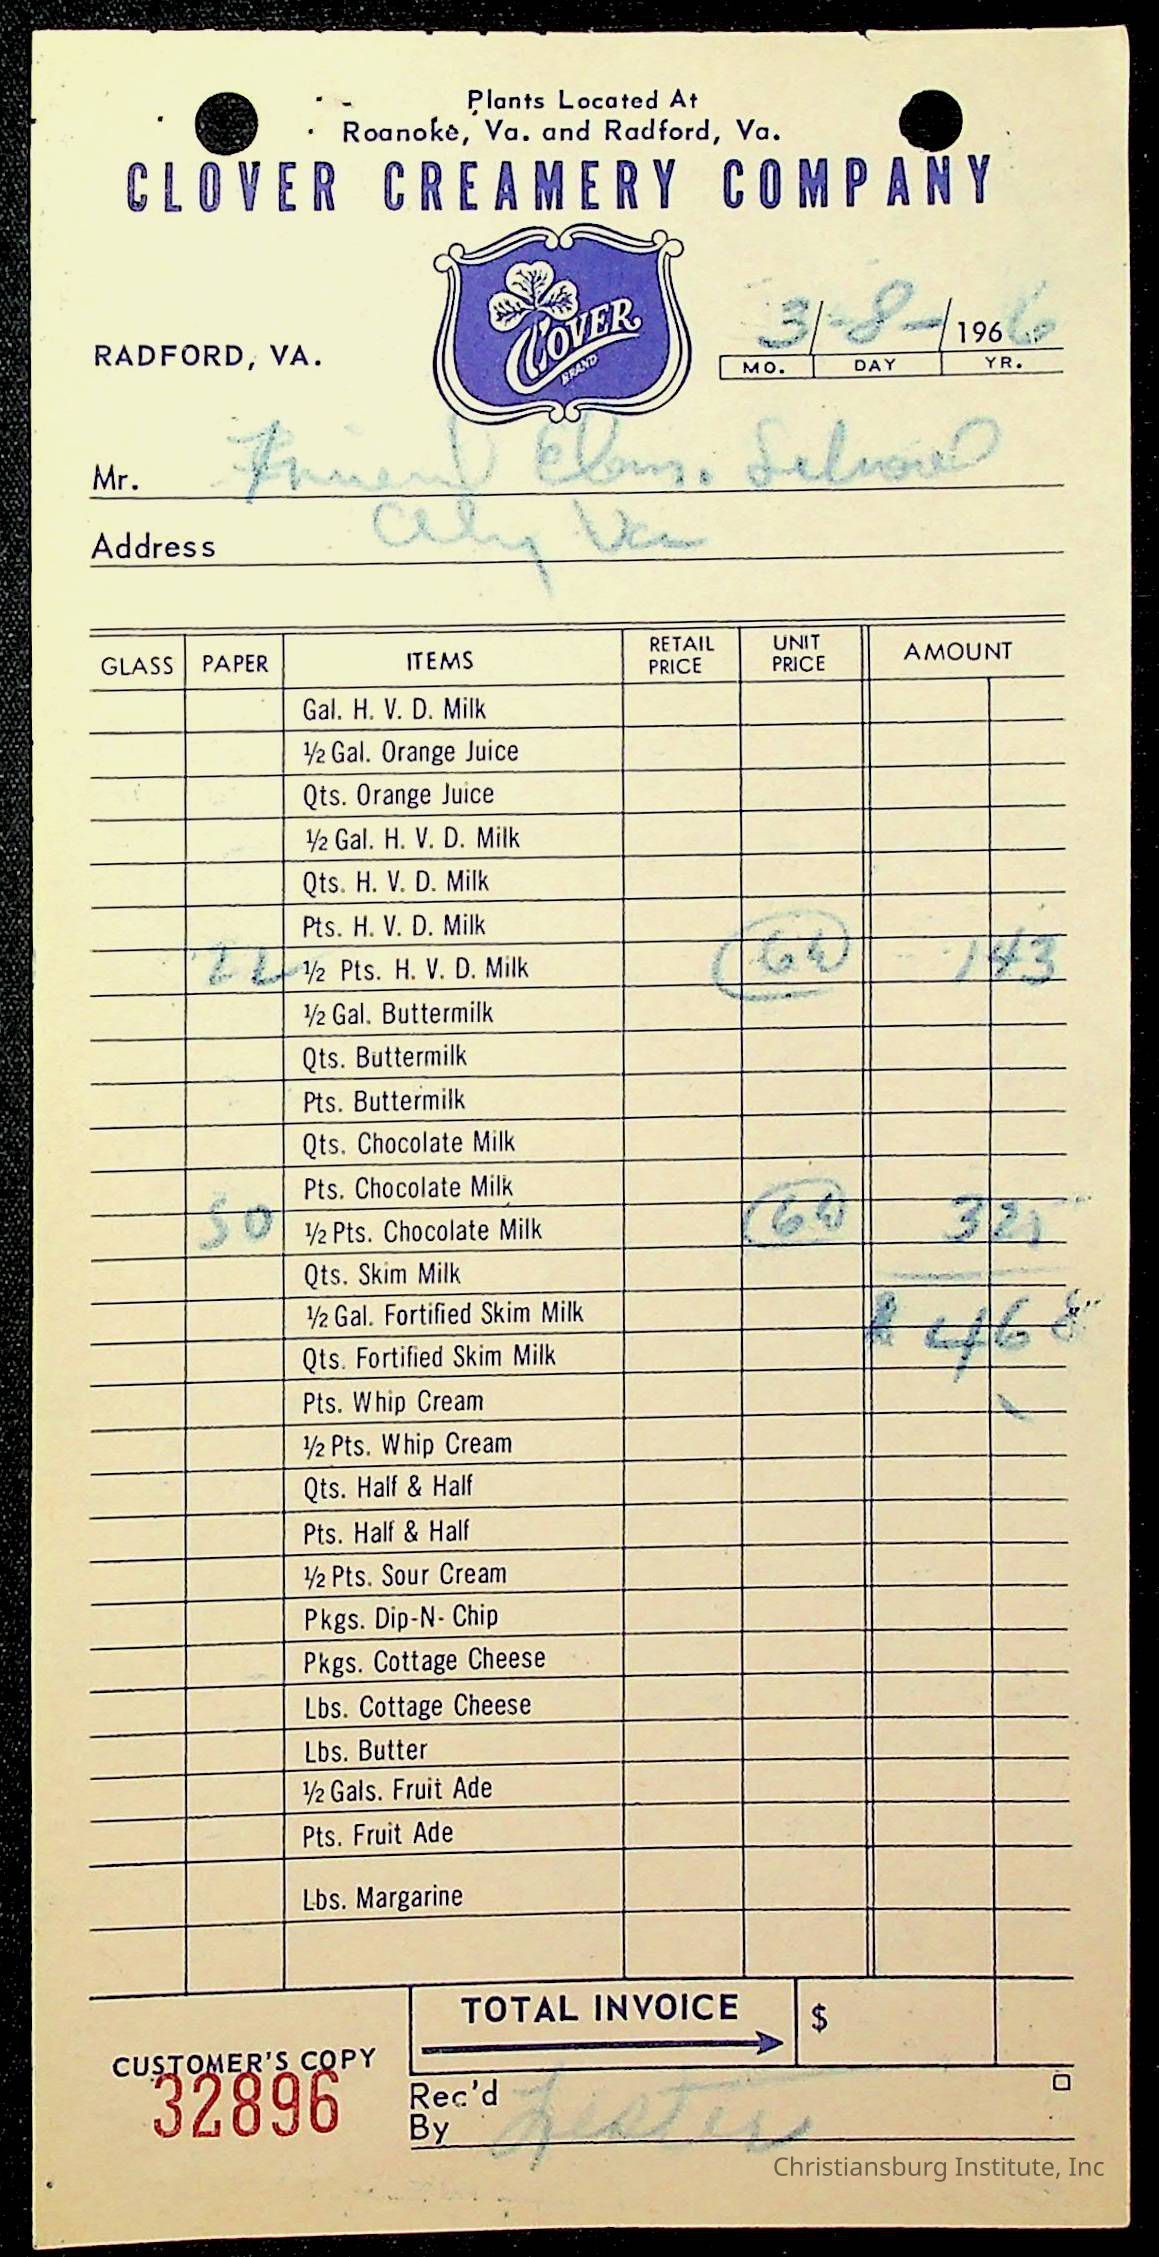 Plants Located At
Roanoke, Va. and Radford, Va.
CLOVER CREAMERY COMPANY
CLOVER
BRAND
RADFORD, VA.
3/-8-/1966
MO. DAY YR.
Mr. Friend Elem. School
Address
GLASS PAPER ITEMS RETAIL PRICE UNIT PRICE AMOUNT
Gal. H. V. D. Milk
½ Gal. Orange Juice
Qts. Orange Juice
½ Gal. H. V. D. Milk
Qts. H. V. D. Milk
Pts. H. V. D. Milk
22 ½ Pts. H. V. D. Milk 143
½ Gal. Buttermilk
Qts. Buttermilk
Pts. Buttermilk
Qts. Chocolate Milk
Pts. Chocolate Milk
50 ½ Pts. Chocolate Milk 325
Qts. Skim Milk
½ Gal. Fortified Skim Milk
$ 468
Qts. Fortified Skim Milk
Pts. Whip Cream
½ Pts. Whip Cream
Qts. Half & Half
Pts. Half & Half
½ Pts. Sour Cream
Pkgs. Dip-N-Chip
Pkgs. Cottage Cheese
Lbs. Cottage Cheese
Lbs. Butter
½ Gals. Fruit Ade
Pts. Fruit Ade
Lbs. Margarine
TOTAL INVOICE $
CUSTOMER'S COPY
32896
Rec'd
By Lester
Christiansburg Institute, Inc